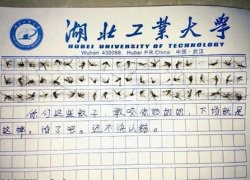 湖北工業大学
HUBEI UNIVERSITY OF TECHNOLOGY
Wuhan 430068, Hubei P.R.China 中国·武汉
你们这些蚊子,敢咬你的姐姐,下场就是
这样。怕了吧。还不快认错。